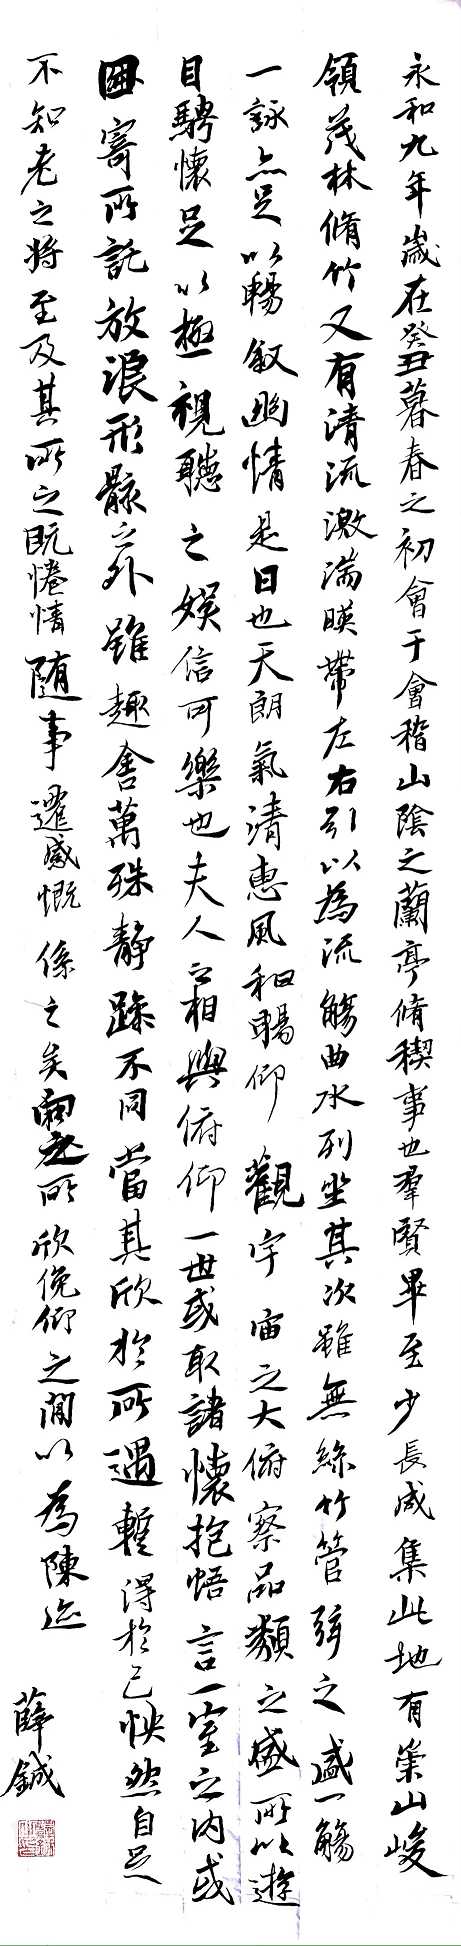 永和九年歲在癸丑暮春之初會于會稽山陰之蘭亭脩稧事也羣賢畢至少長咸集此地有崇山峻
領茂林脩竹又有清流激湍暎帶左右引以為流觴曲水列坐其次雖無絲竹管弦之盛一觴
一詠亦足以暢敘幽情是日也天朗氣清惠風和暢仰觀宇宙之大俯察品類之盛所以遊
目騁懷足以極視聽之娛信可樂也夫人之相與俯仰一世或取諸懷抱悟言一室之內或
因寄所託放浪形骸之外雖趣舍萬殊靜躁不同當其欣於所遇暫得於己怏然自足
不知老之將至及其所之既惓情隨事遷感慨係之矣向之所欣俛仰之間以為陳迹
薛鋮